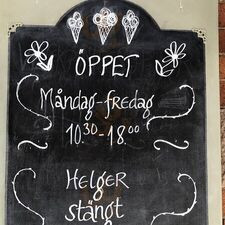 ÖPPET
Måndag-fredag
10.30-18.00
HELGER
stängt